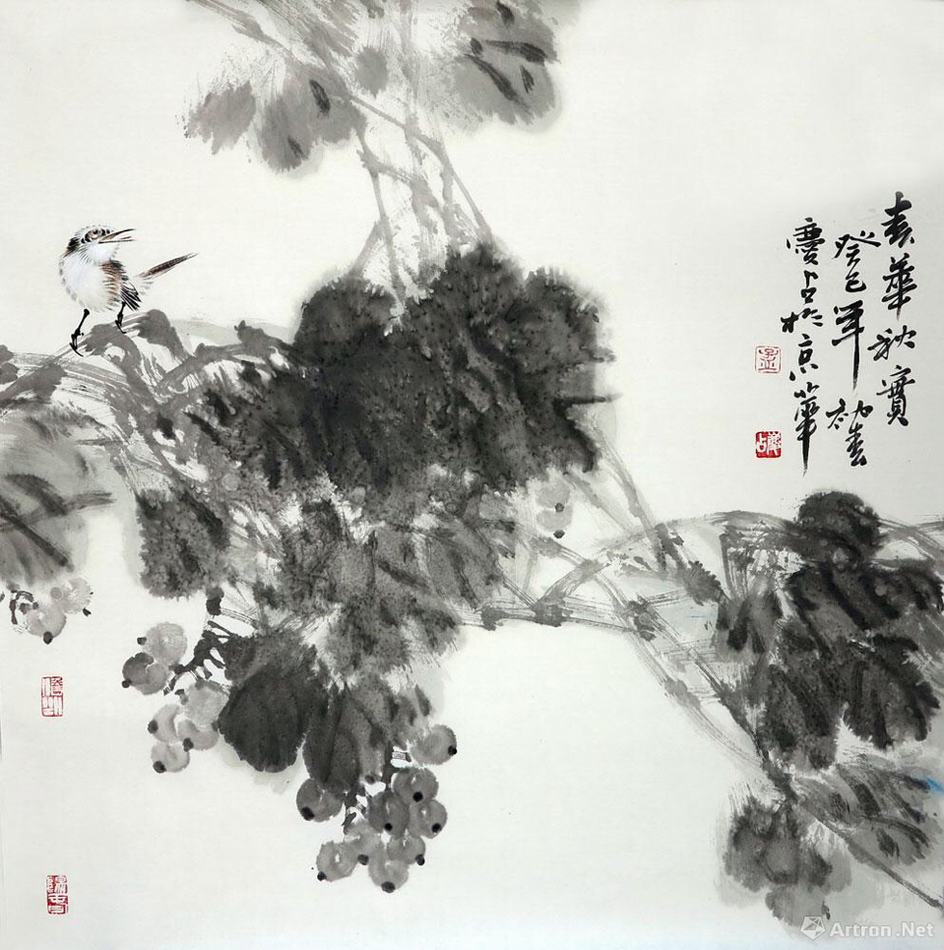 春華秋實
癸巳年初春
慶占於京華
Artron.Net